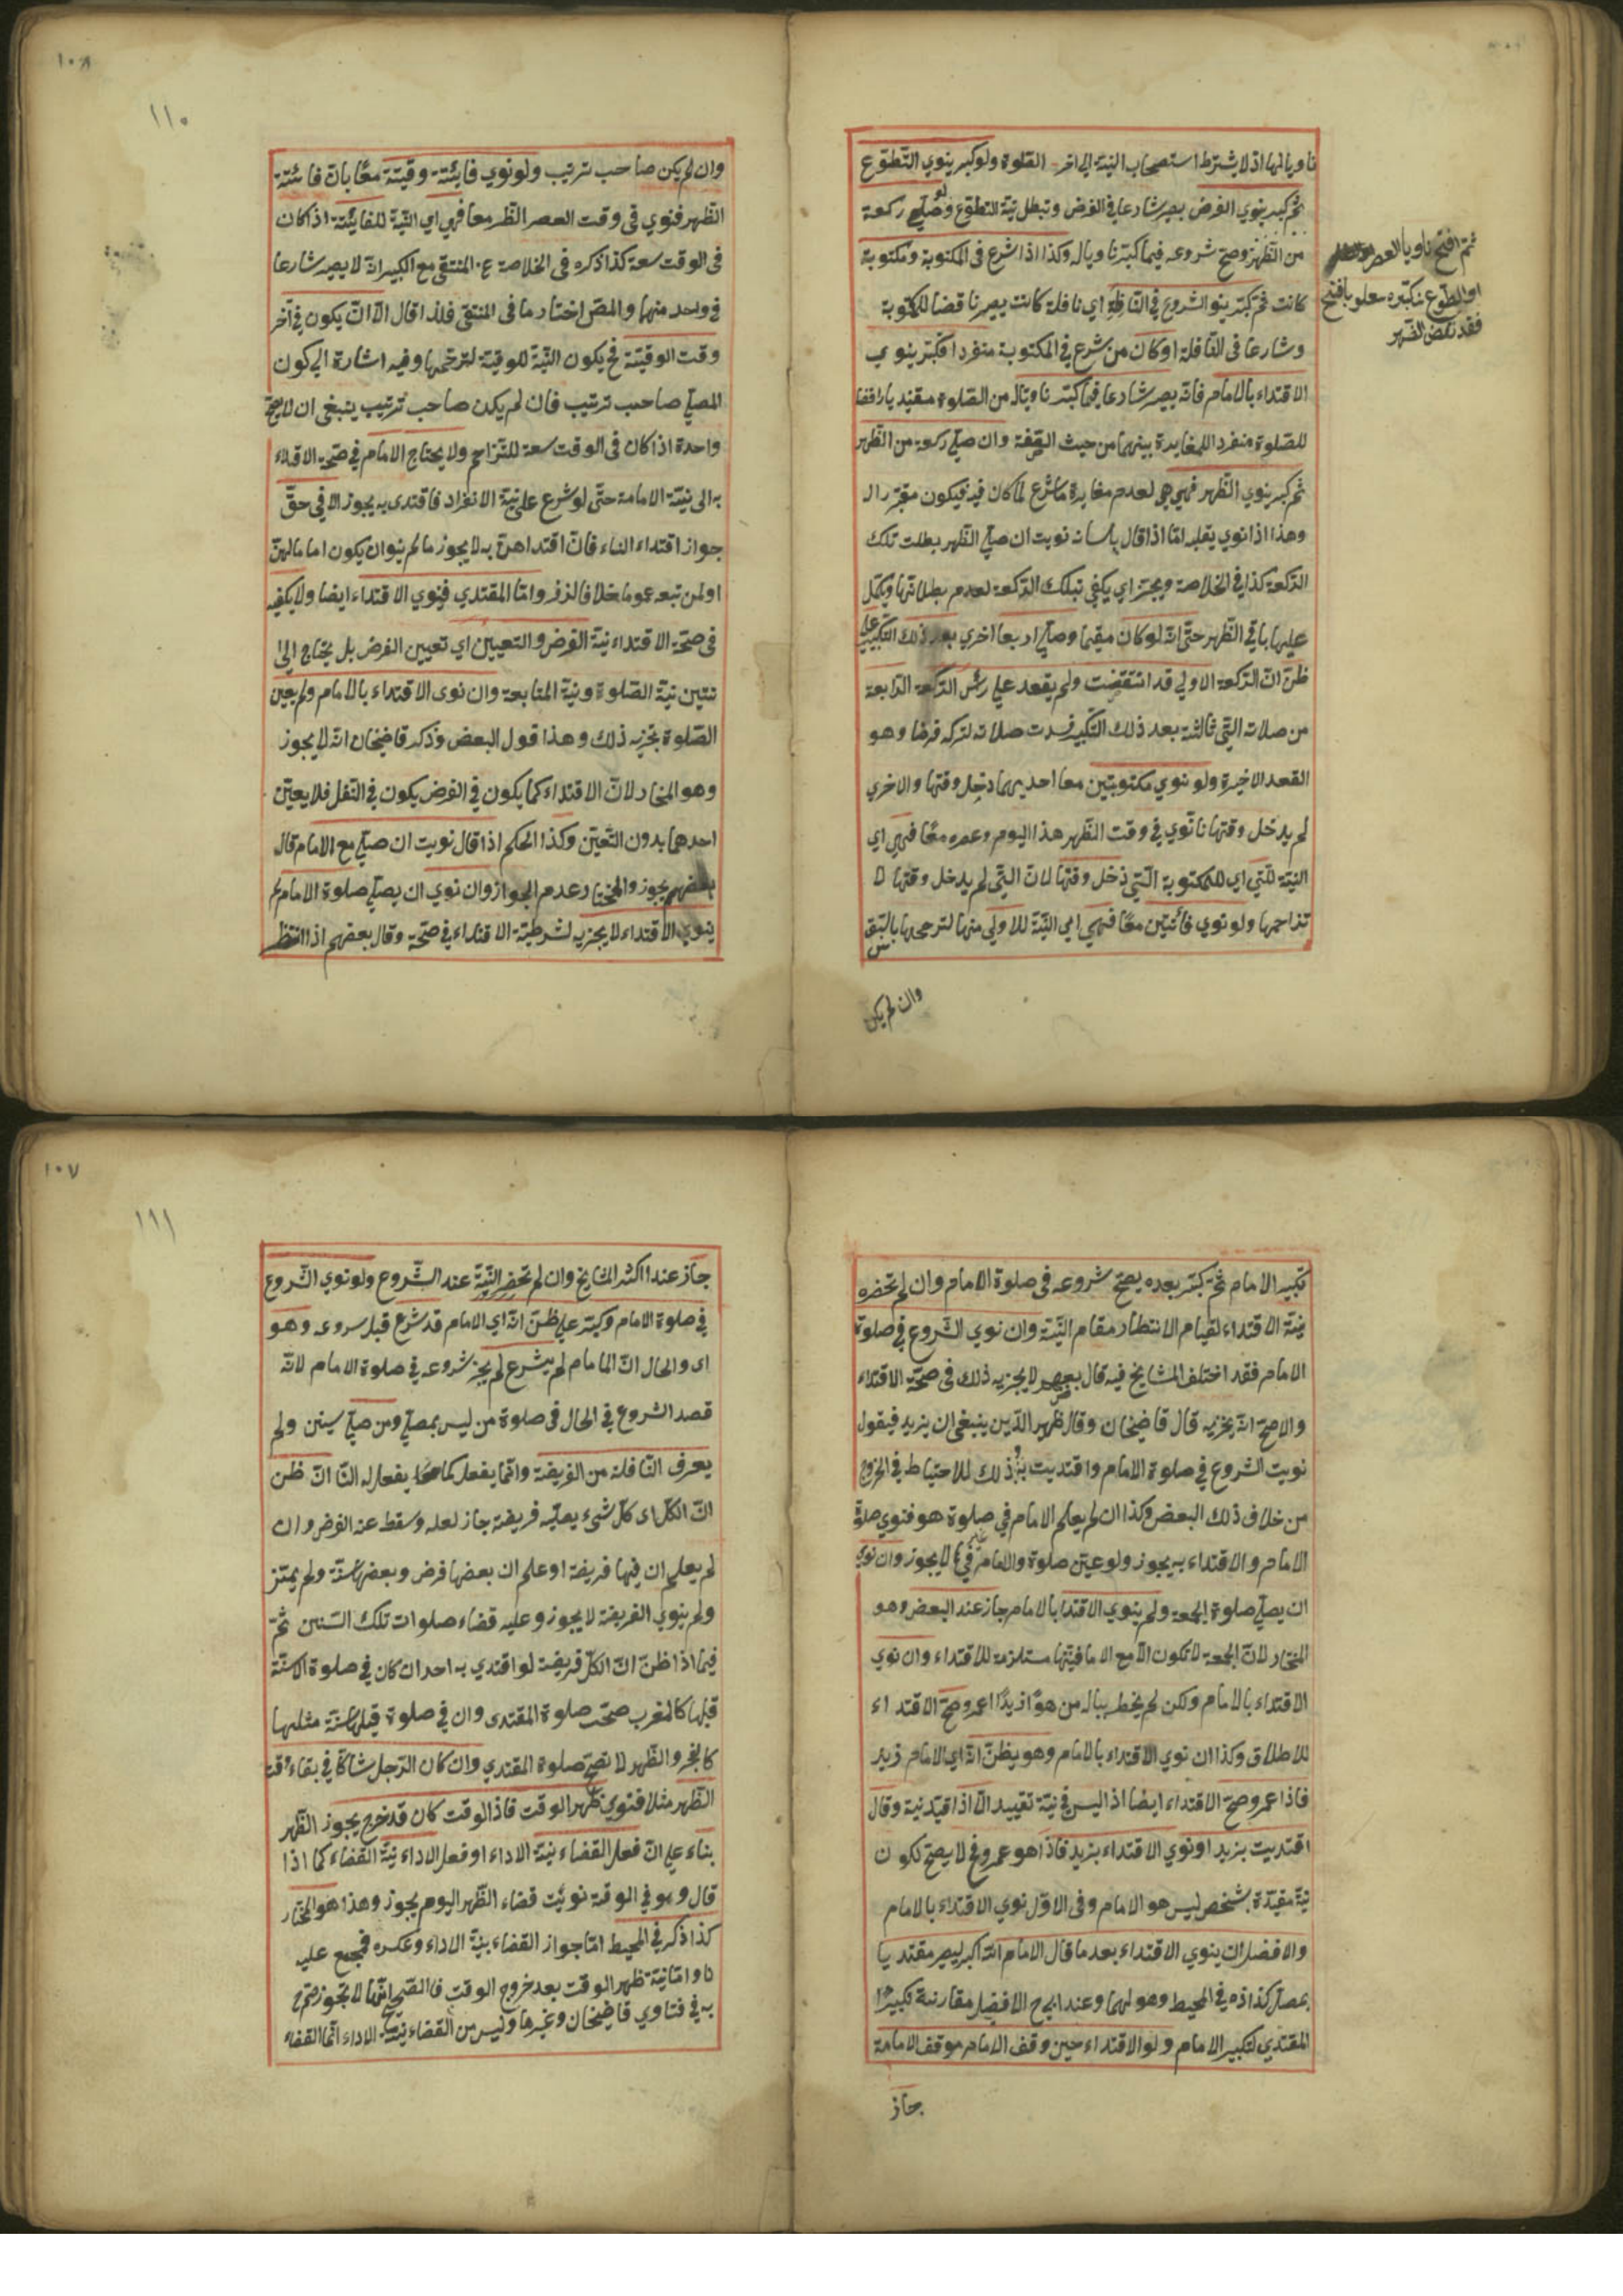 ناويا لها اذ لا يشترط استصحاب النية الى اخر الصلوة ولو كبر ينوي التطوع
ثم كبر ينوي الفرض يصير شارعا في الفرض وتبطل نية التطوع ولو صلى ركعة
من الظهر وصح شروعه فيما كبر ناويا له وكذا اذا شرع في المكتوبة ومكتوبة
كانت ثم كبر ينوالشروع في النافلة اي نافلة كانت يصير ناقضا للمكتوبة
وشارعا في النافلة او كان من شرع في المكتوبة منفردا فكبر ينوي
الاقتداء بالامام فانه يصير شارعا فيما كبر ناويا له من الصلوة مقتديا رافضا
للصلوة منفردا للمغايرة بينهما من حيث الصفة وان صلى ركعة من الظهر
ثم كبر ينوي الظهر فهي هي لعدم مغايرة ما شرع لما كان فيه فيكون مقررا له
وهذا اذا نوي بقلبه اما اذا قال بلسانه نويت ان صلي الظهر بطلت تلك
الركعة كذا في الخلاصة ويجتز اي يكفي تبلك الركعة لعدم بطلانها ويكمل
عليها باقي الظهر حتى انه لو كان مقيما وصلى اربعا اخري بعد ذلك التكبير على
ظن ان الركعة الاولي قد انتقضت ولم يقعد على رأس الركعة الرابعة
من صلاته التي ثالثة بعد ذلك التكبير فسدت صلاته لتركه فرضا وهو
القعد الاخيرة ولو نوي مكتوبتين معا احديهما دخل وقتها والاخري
لم يدخل وقتها نا نوي في وقت الظهر هذا اليوم وعصره معًا فهي اي
النية للتي اي للمكتوبة التي دخل وقتها لان التي لم يدخل وقتها لا
تزاحمها ولو نوي فائتتين معًا فهي اي النية للاولى منها لترجحها بالسبق
وان لم يكن
ثم افتتح ناويا العصر
او التطوع بتكبيره
فقد نقض الظهر
١١٠
وان لم يكن صاحب ترتيب ولو نوي فايئتة وقيتة معًا بان فائتة
الظهر فنوي في وقت العصر الظر معا فهي اي النية للفايئتة اذ اكان
في الوقت سعة كذا ذكره في الخلاصة ع المنتقى مع الكبير انه لا يصير شارعا
في واحد منها والمص اختار ما في المنتقى فلذا قال الا ان يكون في آخر
وقت الوقيتة فح يكون النية للوقيتة لترجحها وفيه اشارة الي كون
المصلي صاحب ترتيب فان لم يكن صاحب ترتيب ينبغي ان لا يصح
واحدة اذا كان في الوقت سعة للتزاحم ولا يحتاج الامام في صحة الاقتداء
به الى نية الامامة حتى لو شرع على نية الانفراد فاقتدى به يجوز الا في حق
جواز اقتداء النساء فان اقتداهن به لا يجوز ما لم ينو ان يكون اماما لهن
او لمن تبعه عموما خلافا لزفر واما المقتدي فينوي الاقتداء ايضا ولا يكفيه
في صحة الاقتداء نية الفرض والتعيين اي تعيين الفرض بل يحتاج الى
نتين نية الصلوة ونية المتابعة وان نوى الاقتداء بالامام ولم يعين
الصلوة يجزيه ذلك وهذا قول البعض وذكر قاضيخان انه لا يجوز
وهو المختار لان الاقتداء كما يكون في الفرض يكون في النفل فلا يعين
احدهما بدون التعين وكذا الحكم اذا قال نويت ان صلي مع الامام قال
بعضهم يجوز والمختار عدم الجواز وان نوي ان يصلي صلوة الامام لم
ينوي الاقتداء لا يجزيه لشرطية الاقتداء في صحته وقال بعضهم اذا انتظر
تكبير الامام ثم كبر بعده يصح شروعه في صلوة الامام وان لم تحضره
نية الاقتداء لقيام الانتظار مقام النية وان نوي الشروع في صلوة
الامام فقد اختلف المشايخ فيه قال بعضهم لا يجزيه ذلك في صحة الاقتداء
والاصح انه يجزيه قال قاضيخان وقال ظهير الدين ينبغي ان يزيد فيقول
نويت الشروع في صلوة الامام واقتديت به وذلك للاحتياط في الخروج
من خلاف ذلك البعض وكذا ان لم يعلم الامام في صلوة هو فنوي صلوة
الامام والاقتداء به يجوز ولو عين صلوة والامام في لا يجوز وان نوي
ان يصلي صلوة الجمعة ولم ينوي الاقتدا بالامام جاز عند البعض وهو
المختار لان الجمعة لا تكون الا مع الاما فنيتها مستلزمة للاقتداء وان نوي
الاقتداء بالامام ولكن لم يخطر بباله من هو ازيدًا ام عمرو صح الاقتداء
للاطلاق وكذا ان نوي الاقتداء بالامام وهو يظن انه اي الامام زيد
فاذا عمرو صح الاقتداء ايضا اذ اليس في نية تقييد الا اذا قيد نية وقال
اقتديت بزيد او نوي الاقتداء بزيد فاذا هو عمرو فح لا يصح لكون
نية مقيدة بشخص ليس هو الامام وفي الاول نوي الاقتداء بالامام
والافضل ان ينوي الاقتداء بعد ما قال الامام الله اكبر ليصير مقتديا
بمصل كذا ذه في المحيط وهو لهما وعند ابي ح الافضل مقارنة تكبيرًا
المقتدي لتكبير الامام ولو الاقتداء حين وقف الامام موقف الامامة
جاز
١٠٧
١١١
جاز عند اكثر المشايخ وان لم تحضر النية عند الشروع ولو نوي الشروع
في صلوة الامام وكبر على ظن انه اي الامام قد شرع قبل سروعه وهو
اى والحال ان الامام لم يشرع لم يجز شروعه في صلوة الامام لانه
قصد الشروع في الحال في صلوة من ليس بمصلي ومن صلي سنين ولم
يعرف النافلة من الفريضة وانما يفعل كما يفعله النا ان ظن
ان الكل اى كل شيء يصليه فريضة جاز لعله وسقط عنه الفرض وان
لم يعلم ان فيها فريضة او علم ان بعضها فرض وبعضها سنة ولم يمتز
ولم ينوي الفريضة لا يجوز وعليه قضاء صلوات تلك السنين ثم
فيما اذا ظن ان الكل فريضة لو اقتدي به احد ان كان في صلوة لا سنة
قبلها كالمغرب صحت صلوة المقتدى وان في صلوة قبلها سنة مثلها
كالفجر والظهر لا تصح صلوة المقتدي وان كان الرجل شاكا في بقاء وقت
الظهر مثلا فنوي ظهر الوقت فاذ الوقت كان قد خرج يجوز الظهر
بناء على ان فعل القضاء بنية الاداء او فعل الاداء نية القضاء كما اذا
قال وهو في الوقت نويت قضاء الظهر اليوم يجوز وهذا هو المختار
كذا ذكر في المحيط اما جواز القضاء بنية الاداء وعكسه فمجمع عليه
واما نية ظهر الوقت بعد خروج الوقت فالصحيح انها لا تجوز صرح
به في فتاوي قاضيخان وغيرها وليس من القضاء بنية الاداء انما القضاء